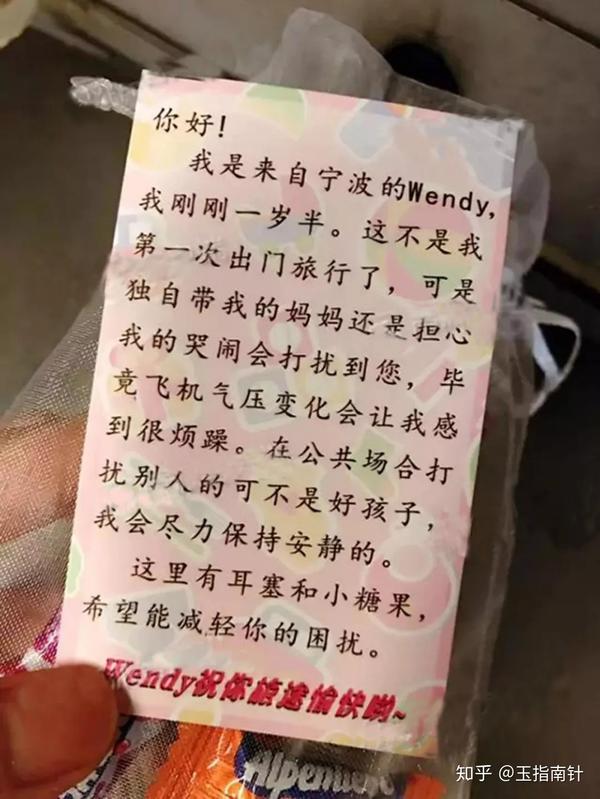 你好!
我是来自宁波的Wendy,
我刚刚一岁半。这不是我
第一次出门旅行了，可是
独自带我的妈妈还是担心
我的哭闹会打扰到您，毕
竟飞机气压变化会让我感
到很烦躁。在公共场合打
扰别人的可不是好孩子，
我会尽力保持安静的。
这里有耳塞和小糖果，
希望能减轻你的困扰。
Wendy祝你旅途愉快哟~
Alpenliebe
知乎 @玉指南针